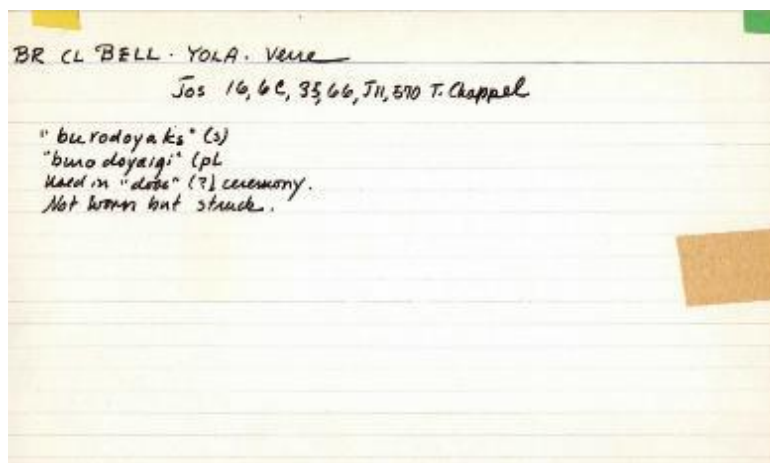 BR CL BELL. YOLA. Verre
Jos 16, 6C, 35, 66, J11, 570 T. Chappel
"burodoyaks" (s)
"buro doyaigi" (pL
Used in "dobs" (?) ceremony.
Not worn but struck.